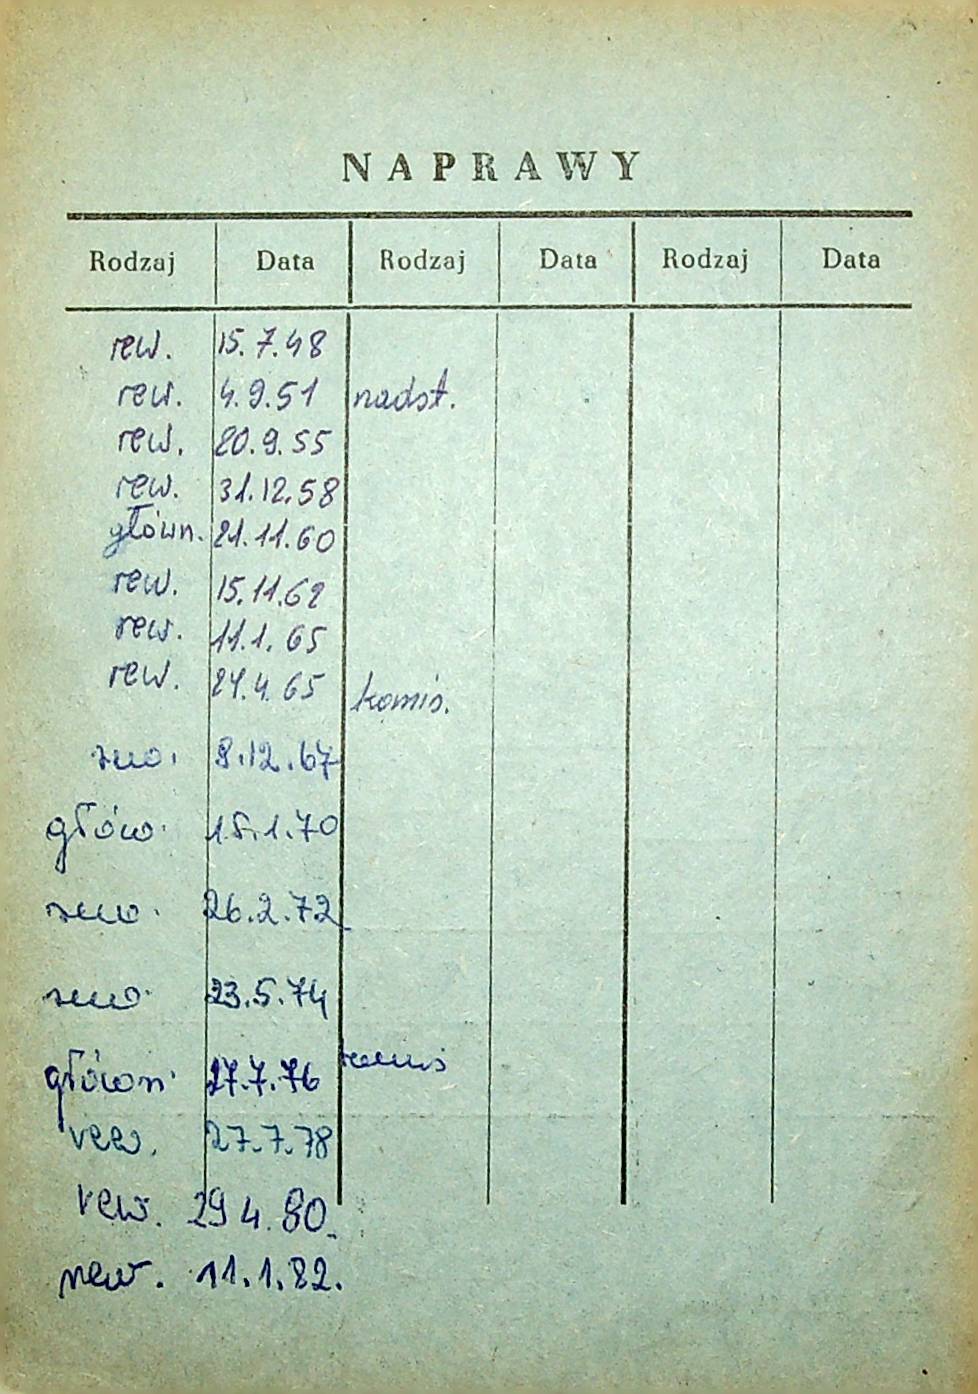 NAPRAWY
Rodzaj Data Rodzaj Data Rodzaj Data
rew. 15.7.48
rew. 4.9.51 nadst.
rew. 20.9.55
rew. 31.12.58
główn. 21.11.60
rew. 15.11.62
rew. 11.1.65
rew. 24.4.65 komis.
8.12.67
głów. 15.1.70
26.2.72
23.5.74
główn. 27.7.76
rew. 27.7.78
rew. 29 4.80.
rew. 11.1.82.